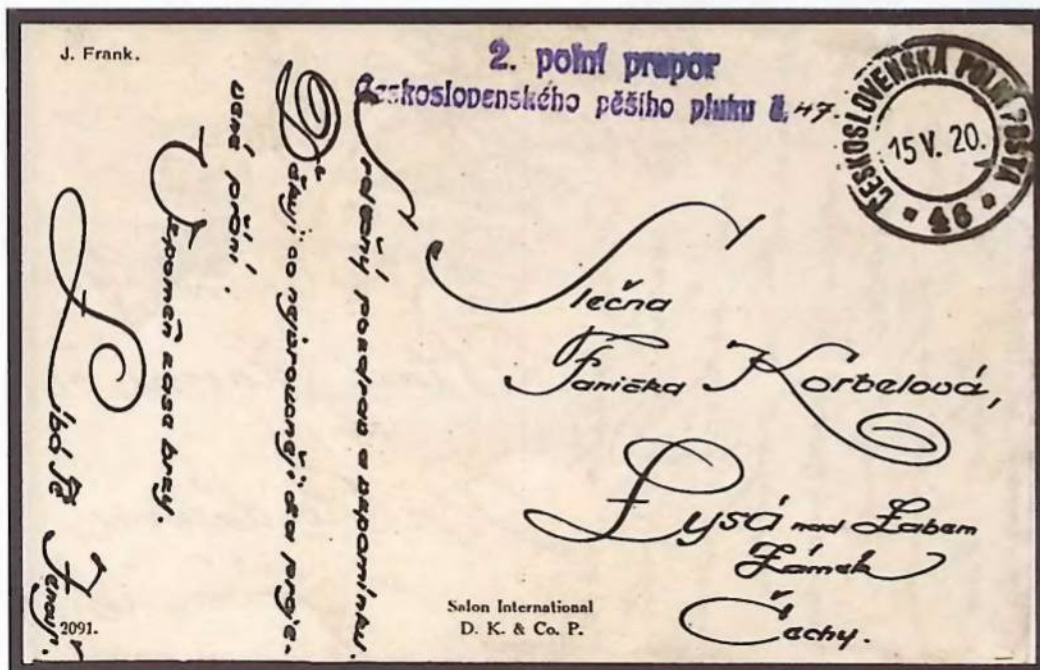 J. Frank.
2. polní prapor
Československého pěšího pluku č. 47.
ČESKOSLOVENSKÁ POLNÍ POŠTA
15 V. 20.
46
Srdečný pozdrav a vzpomínku.
Děkuji co nejvroucněji za proje-
vené přání.
Vzpomeň zase brzy.
Líbá Tě
Slečna
Fanička Korbelová,
Lysá nad Labem
Zámek
Čechy.
Salon International
D. K. & Co. P.
2091.